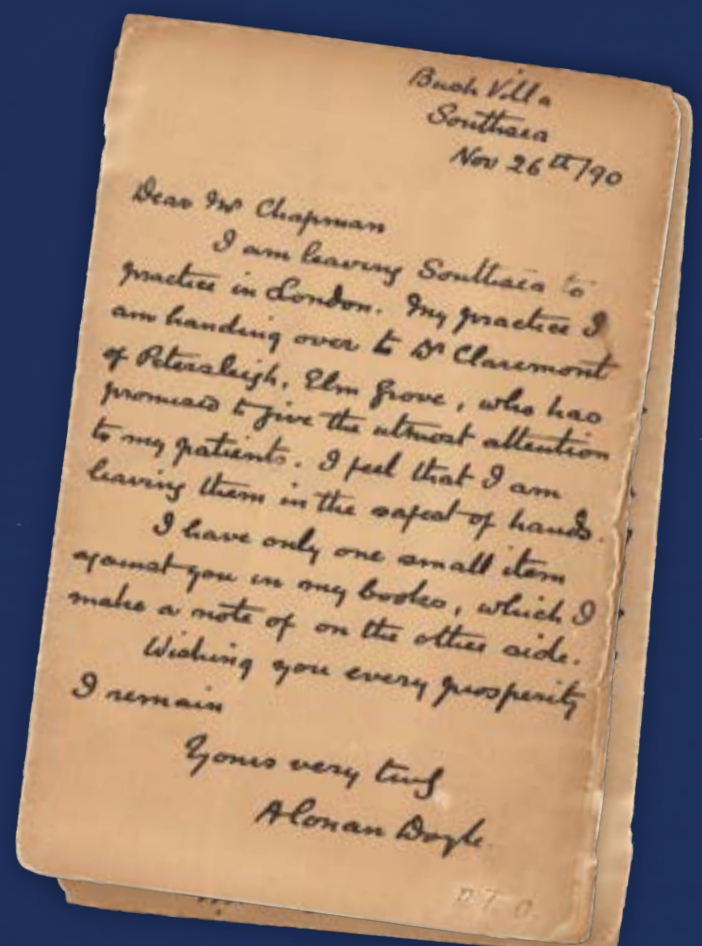 Bush Villa
Southsea
Nov 26th/90
Dear Mr Chapman
I am leaving Southsea to
practice in London. My practice I
am handing over to Dr Claremont
of Petersleigh, Elm Grove, who has
promised to give the utmost attention
to my patients. I feel that I am
leaving them in the safest of hands.
I have only one small item
against you in my books, which I
make a note of on the other side.
Wishing you every prosperity
I remain
Yours very truly
A Conan Doyle
P.T.O.